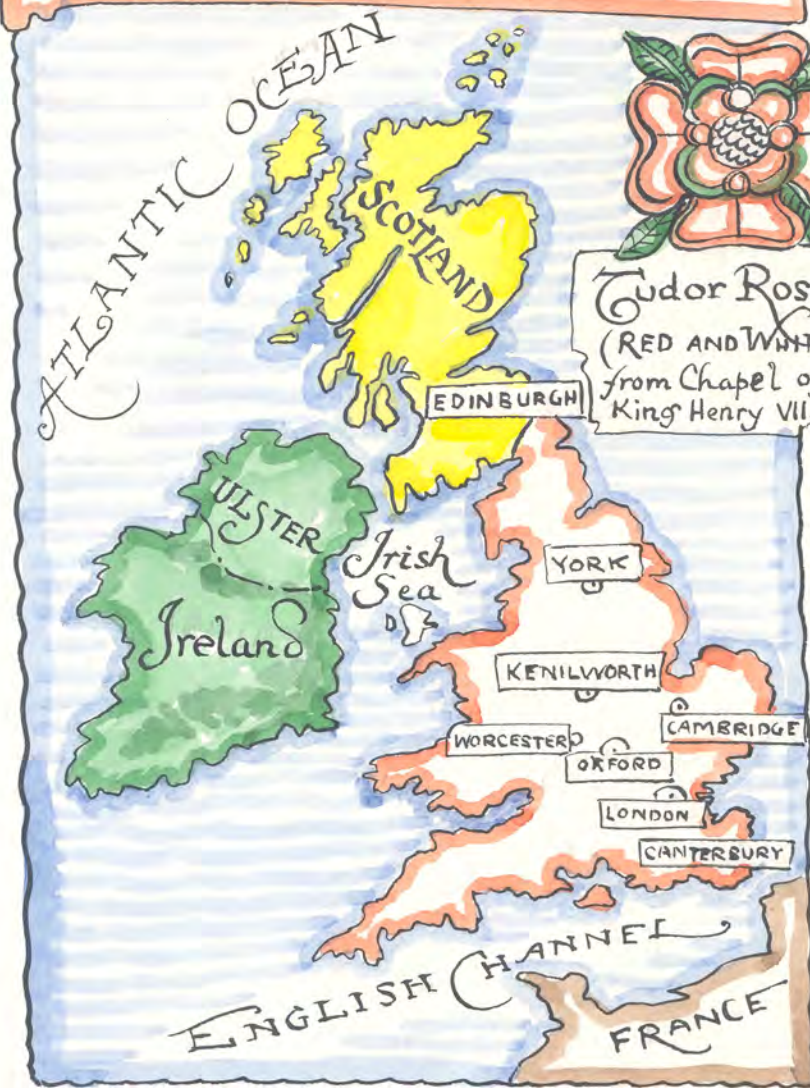 ATLANTIC OCEAN
SCOTLAND
Tudor Ros
(RED AND WHIT
from Chapel o
King Henry VII
EDINBURGH
ULSTER
Irish
Sea
Ireland
YORK
KENILWORTH
CAMBRIDGE
WORCESTER
OXFORD
LONDON
CANTERBURY
ENGLISH CHANNEL
FRANCE